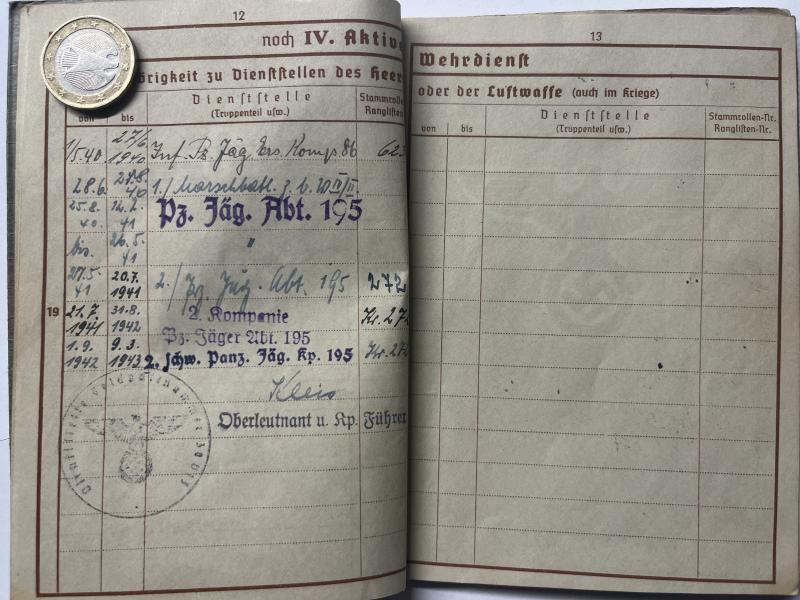 12
noch IV. Aktive
örigkeit zu Dienststellen des Heer
von
bis
Dienststelle
(Truppenteil usw.)
Stammrolle
Ranglisten
1/5.40. 27/6. 1940 Inf. Pz. Jäg. Ers. Komp. 86 62
28.6. 40 1./Marschbatl. z. b.
25.8. 40. 41 Pz. Jäg. Abt. 195
bis 26.5. 41 "
27.5. 41 20.7. 1941 2./Pz. Jäg. Abt. 195 272
19
21.7. 1941 31.8. 1942 2. Kompanie Kr. 272
Pz. Jäger Abt. 195
1.9. 1942 9.3. 1943 2. schw. Panz. Jäg. Kp. 195 Kr. 272
Oberleutnant u. Kp. Führer
Dienststelle Feldpostnummer
13
Wehrdienst
oder der Luftwaffe (auch im Kriege)
von
bis
Dienststelle
(Truppenteil usw.)
Stammrollen-Nr.
Ranglisten-Nr.